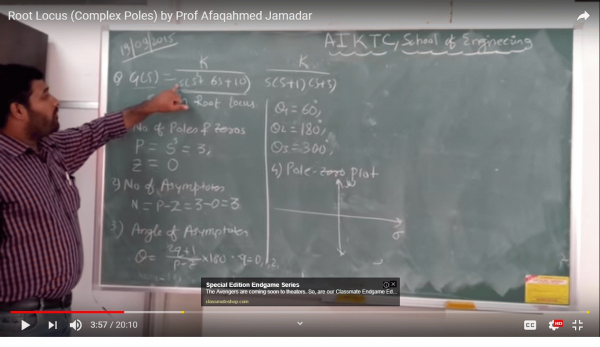 Root Locus (Complex Poles) by Prof Afaqahmed Jamadar
19/09/2015
AIKTC, School of Engineering
Q G(S) = K
S(S²+ 6S+10)
K
S(S+1)(S+3)
Root locus
No of Poles & Zeros
P = S³ = 3,
Z = 0
2) No of Asymptotes
N = P-Z = 3-0 = 3
3) Angle of Asymptotes
Θ = 2q+1
P-Z
×180 . q=0,1,2,
Θ1 = 60°,
Θ2 = 180°,
Θ3 = 300°,
4) Pole-zero plot
jω
σ
Special Edition Endgame Series
The Avengers are coming soon to theaters. So, are our Classmate Endgame Ed...
classmateshop.com
3:57 / 20:10
CC
HD